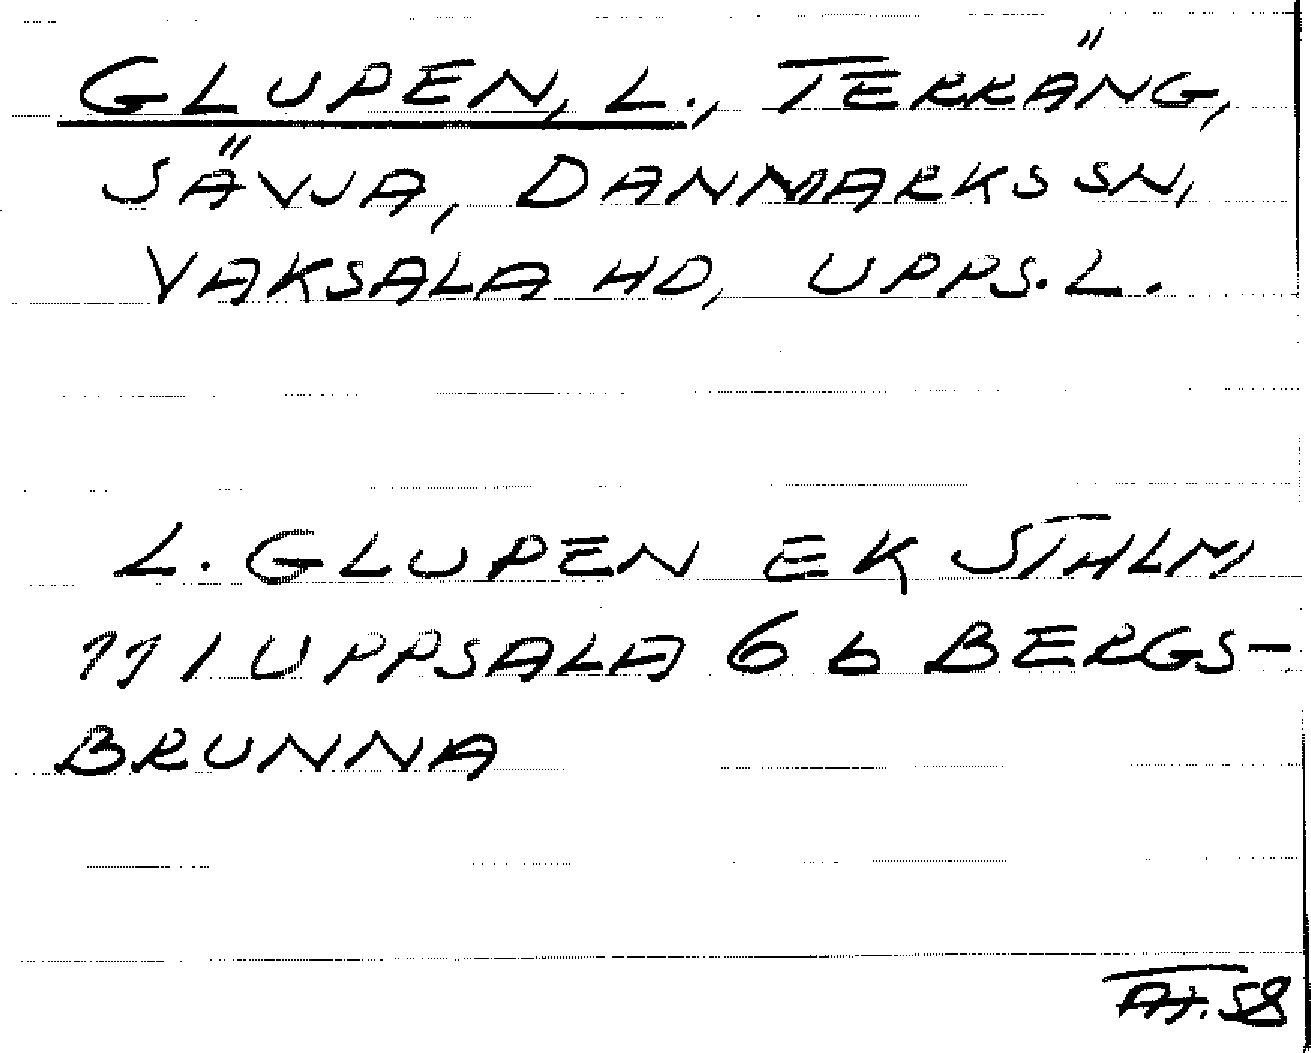 GLUPEN, L., TERRÄNG,
SÄVJA, DANMARKS SN,
VAKSALA HD, UPPS.L.
L. GLUPEN EK STHLM
11 I UPPSALA 6 b BERGS-
BRUNNA